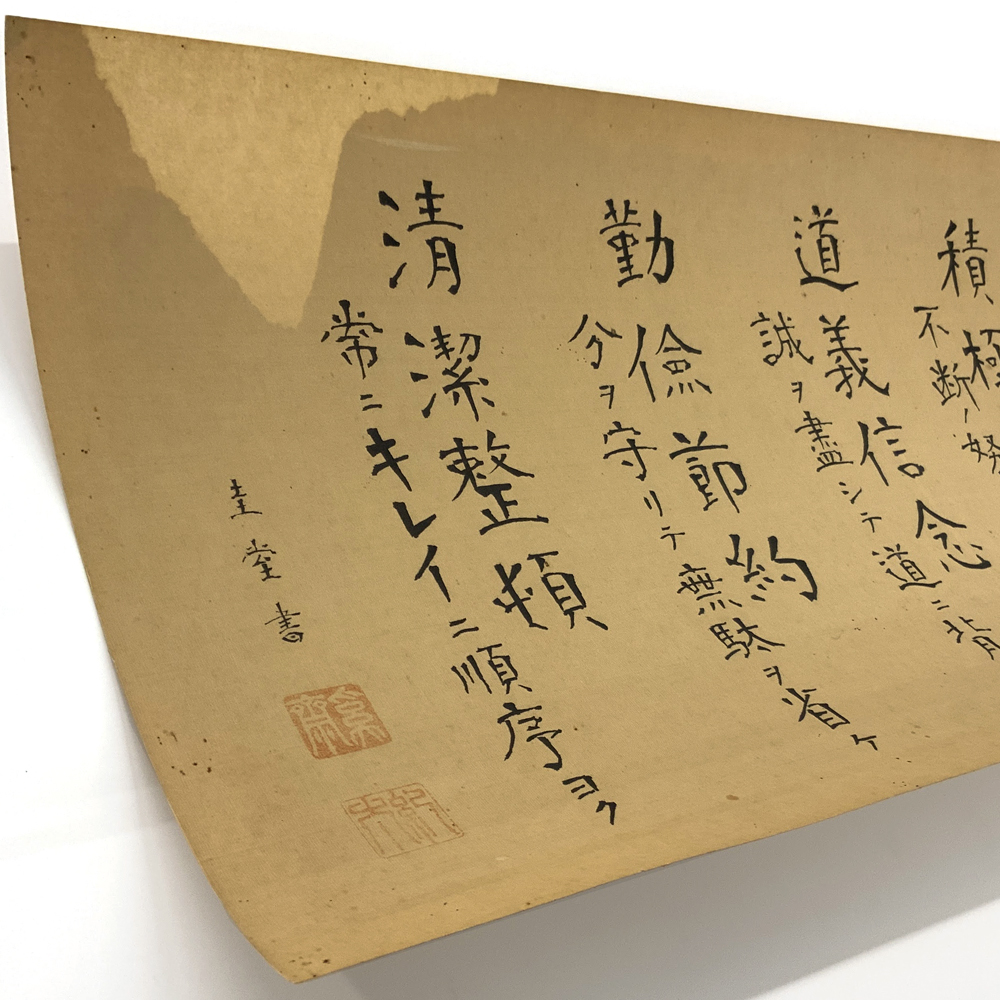 積極
不断ノ努
道義信念
誠ヲ盡シテ道ニ背
勤儉節約
分ヲ守リテ無駄ヲ省ケ
清潔整頓
常ニキレイニ順序ヨク
圭堂書